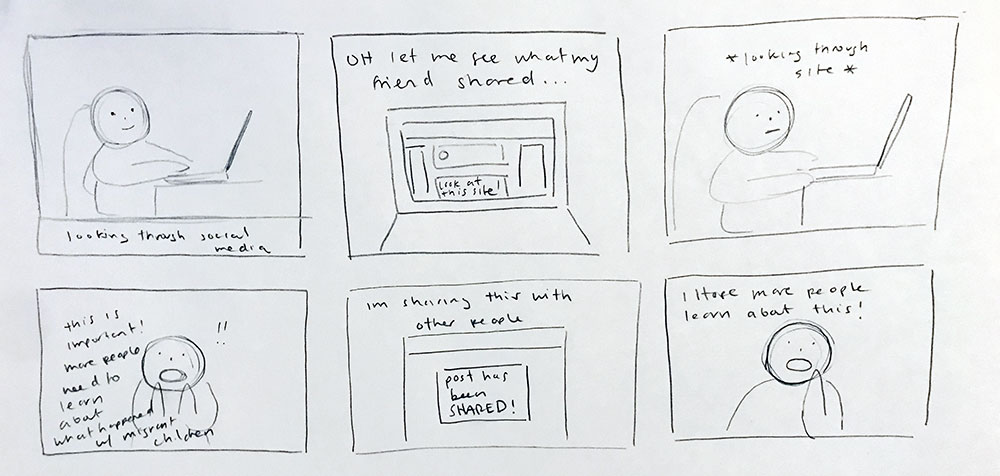 looking through social
media
OH let me see what my
friend shared...
Look at
this site!
*looking through
site*
this is
important!
more people
need to
learn
about
what happened
w/ migrant
children
!!
im sharing this with
other people
post has
been
SHARED!
I Hope more people
learn about this!